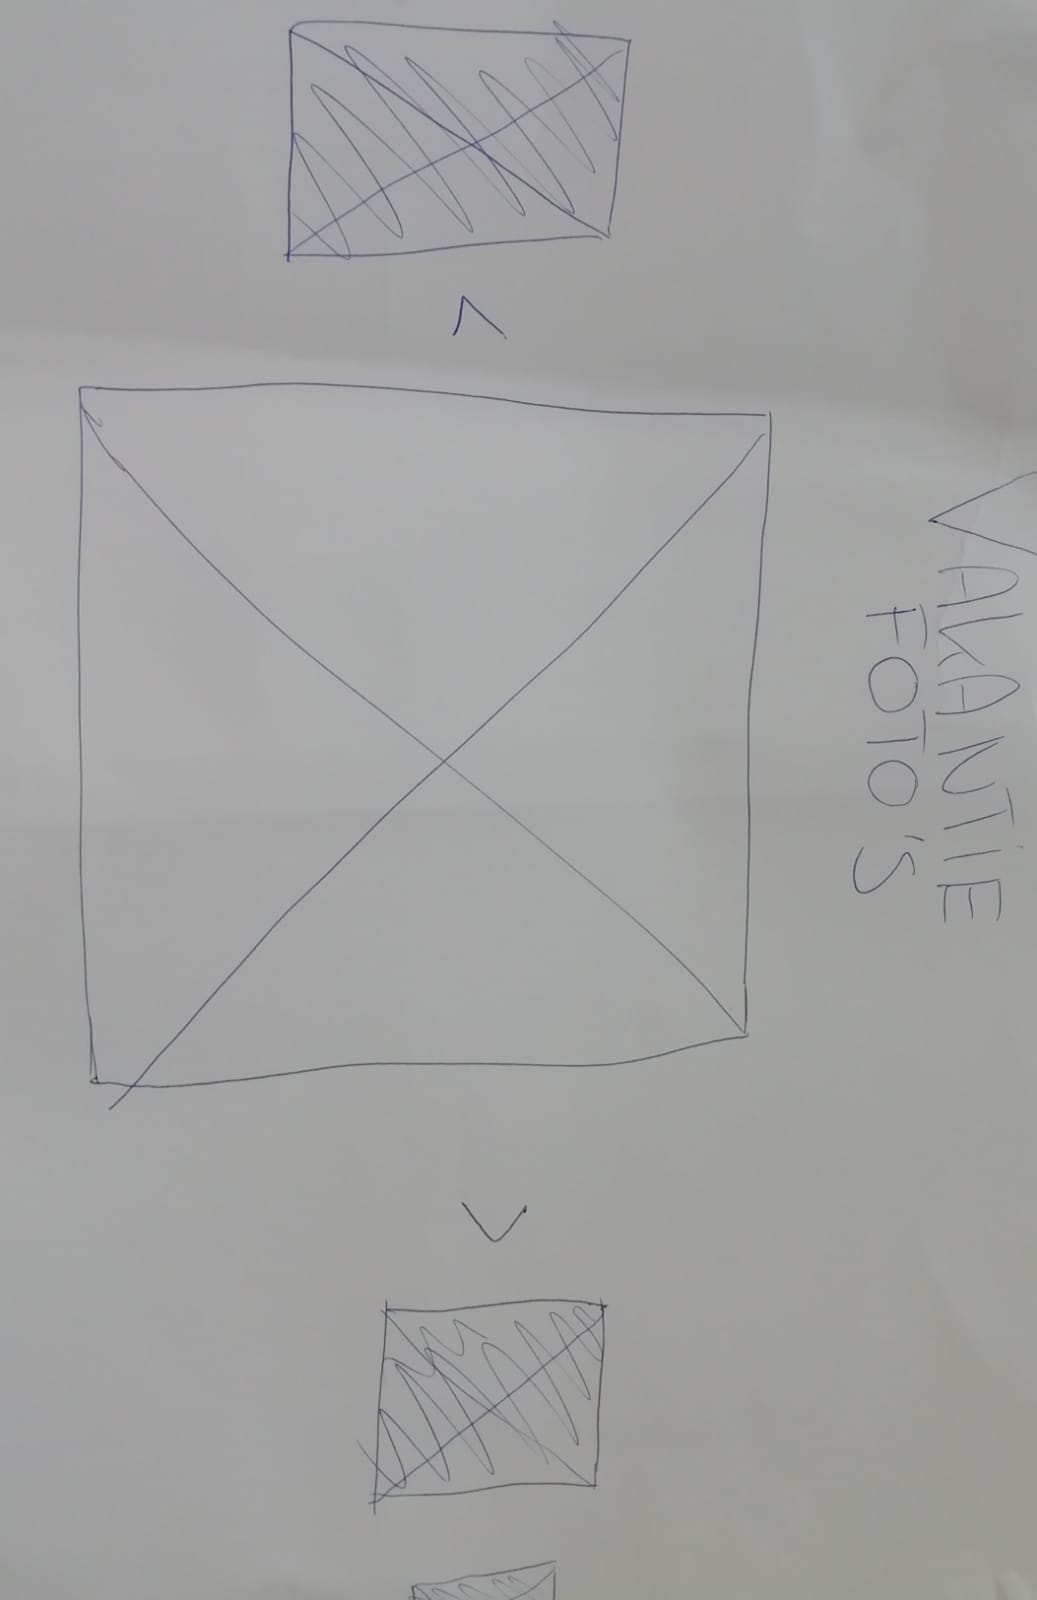 VAKANTIE
FOTO'S